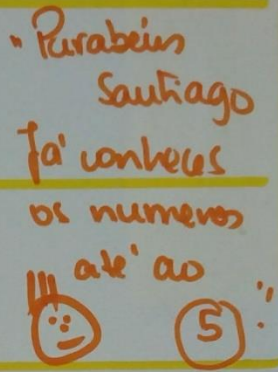 "Parabéns
Santiago
Já conheces
os numeros
até ao
5"